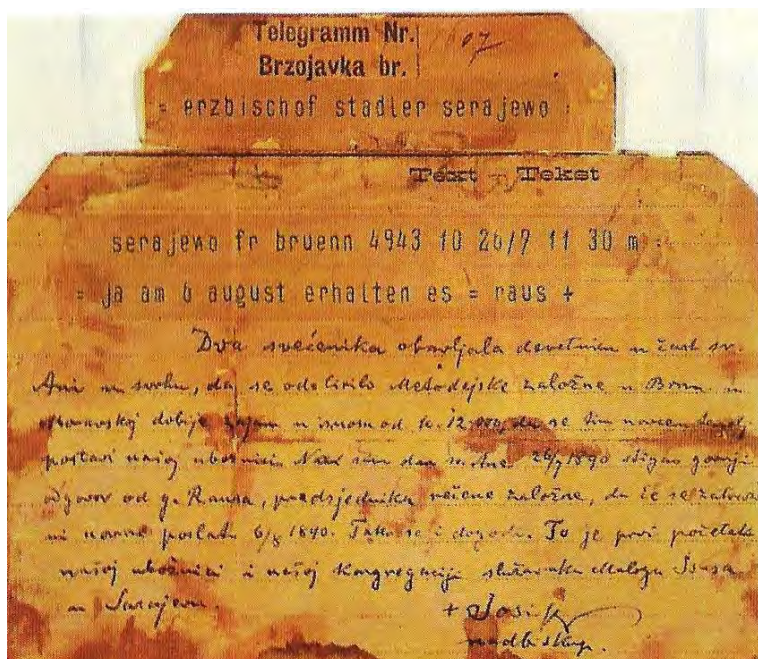 Telegramm Nr. 1607
Brzojavka br.
= erzbischof stadler serajewo =
Text - Tekst
serajewo fr bruenn 4943 10 26/7 11 30 m =
= ja am 6 august erhalten es = raus +
Dva svećenika obavljala devetnicu u čast sv.
Ani u svrhu, da se od Metodejske založne u Brnu u
Moravskoj dobije zajam u iznosu od 12.000, da se tim novcem
postavi našoj ubožnici. Na sam dan sv. Ane 26/7 1890 stigao gornji
odgovor od g. Rausa, predsjednika rečene založne, da će se
ni novac poslati 6/8 1890. Tako se i dogodi. To je prvi početak
našoj ubožnici i našoj kongregaciji služavki Maloga Isusa
u Sarajevu.
+ Josip
nadbiskup.